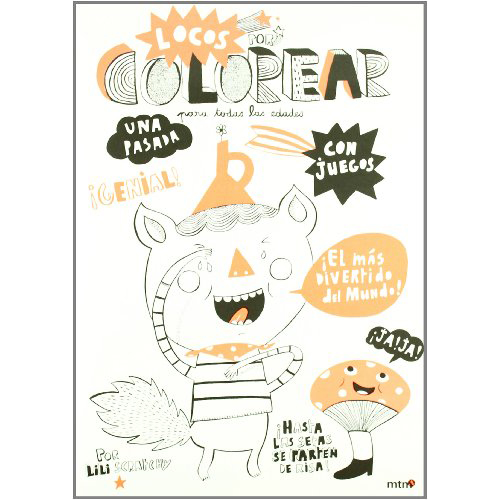 LOCOS
POR
COLOREAR
para todas las edades
UNA
PASADA
CON
JUEGOS
¡GENIAL!
¡EL MÁS
DIVERTIDO
del MUNDO!
¡JA!JA!
¡HASTA
LAS SETAS
SE PARTEN
DE RISA!
POR
LILI SCRATCHY
mtm